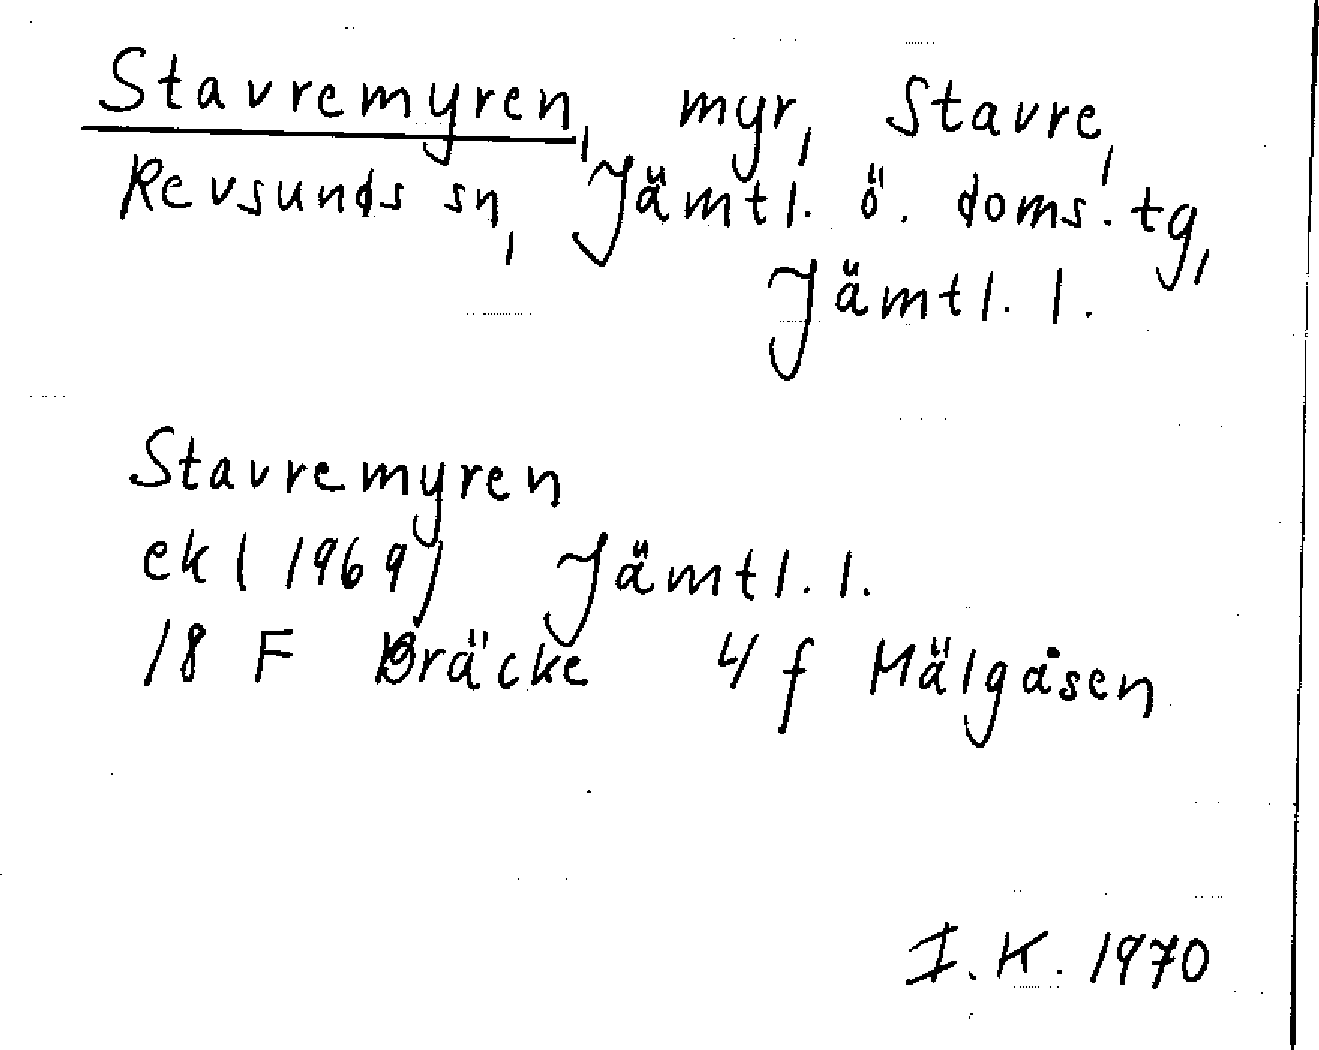 Stavremyren, myr, Stavre,
Revsunds sn, Jämtl. ö. doms. tg,
Jämtl. l.
Stavremyren
ek (1969) Jämtl. l.
18 F Bräcke 4 f Mälgåsen
I. K. 1970